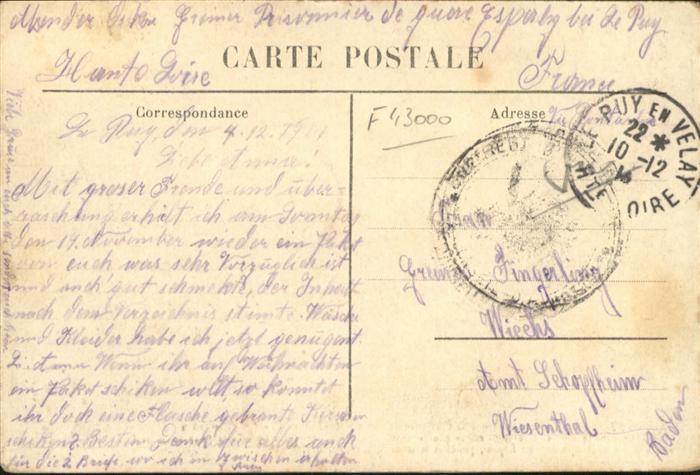 Absender Oskar Greiner Prisonnier de guere Espaly bei Le Puy
CARTE POSTALE
Haute Loire
France
Correspondance
Adresse
F 43000
Le Puy, den 4.12.
Liebe Anna!
Mit groser Freude und über-
raschung erhilt ich am Sonntag
den 19. November wieder ein Paket
von euch was sehr Vorzüglich ist
und auch gut schmekt, der Inhalt
nach dem Verzeichnis stimte. Wäsche
und Kleider habe ich jetzt genügent
L. Anna Wenn ihr auf Weihnachten
ein Paket schiken wilt so konntet
ihr doch eine Flasche gebrant Kirschen
schiken. Besten Dank für alles auch
für die 2 Briefe, wo ich inzwischen erhalten
Frau
Greiner Fingerling
Wiechs
Amt Schopfheim
Wiesenthal
Baden
PUY EN VELAY
22 *
10 -12
HTE LOIRE